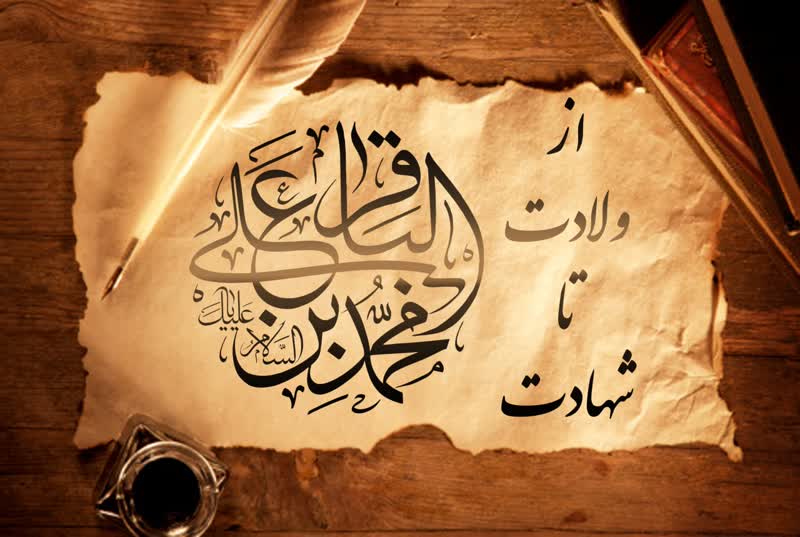 از
ولادت
تا
شهادت
محمد بن علی الباقر
علیک السلام